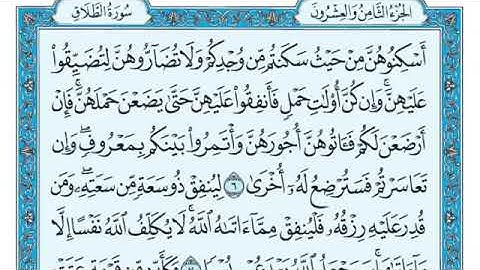 الجُزْءُ الثَّامِنُ وَالعِشْرُونَ
سُورَةُ الطَّلَاقِ
أَسْكِنُوهُنَّ مِنْ حَيْثُ سَكَنتُم مِّن وُجْدِكُمْ وَلَا تُضَارُّوهُنَّ لِتُضَيِّقُوا۟
عَلَيْهِنَّ ۚ وَإِن كُنَّ أُو۟لَٰتِ حَمْلٍ فَأَنفِقُوا۟ عَلَيْهِنَّ حَتَّىٰ يَضَعْنَ حَمْلَهُنَّ ۚ فَإِنْ
أَرْضَعْنَ لَكُمْ فَـَٔاتُوهُنَّ أُجُورَهُنَّ وَأْتَمِرُوا۟ بَيْنَكُم بِمَعْرُوفٍ ۖ وَإِن
تَعَاسَرْتُمْ فَسَتُرْضِعُ لَهُۥٓ أُخْرَىٰ ٦ لِيُنفِقْ ذُو سَعَةٍ مِّن سَعَتِهِۦ ۖ وَمَن
قُدِرَ عَلَيْهِ رِزْقُهُۥ فَلْيُنفِقْ مِمَّآ ءَاتَىٰهُ ٱللَّهُ ۚ لَا يُكَلِّفُ ٱللَّهُ نَفْسًا إِلَّا